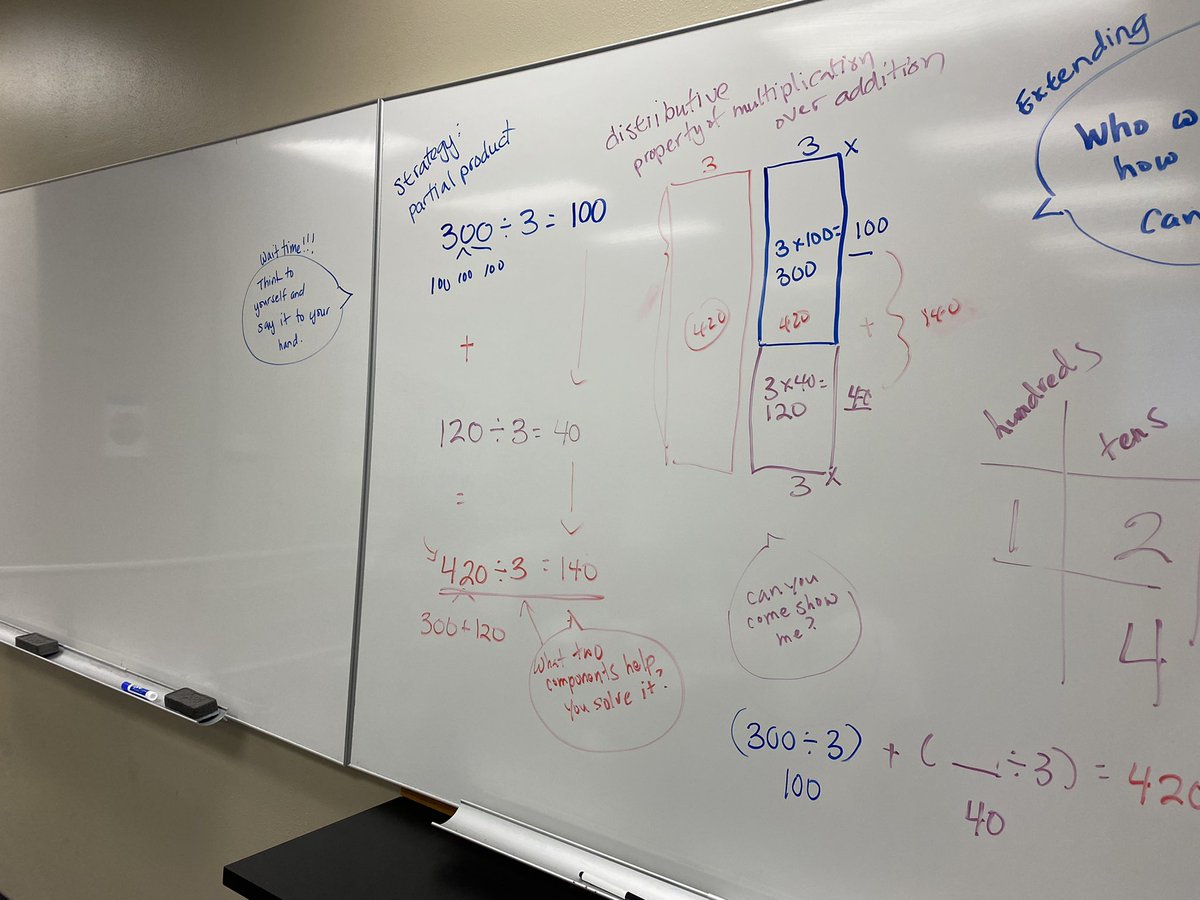 Wait time!!!
Think to
yourself and
say it to your
hand.
strategy:
partial product
300 ÷ 3 = 100
100 100 100
+
120 ÷ 3 = 40
=
420 ÷ 3 = 140
300 + 120
What two
components help
you solve it?
distributive
property of multiplication
over addition
3
420
3 x
3 x 100 =
300
100
420
+
140
3 x 40 =
120
3 x
can you
come show
me?
(300 ÷ 3) + ( __ ÷ 3) = 420
100
40
Extending
Who w
how
can
hundreds
tens
1
2
4